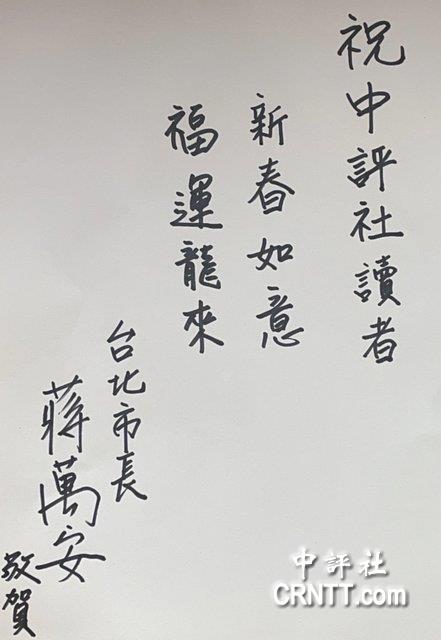 祝中評社讀者
新春如意
福運龍來
台北市長
蔣萬安
敬賀
中評社
CRNTT.com